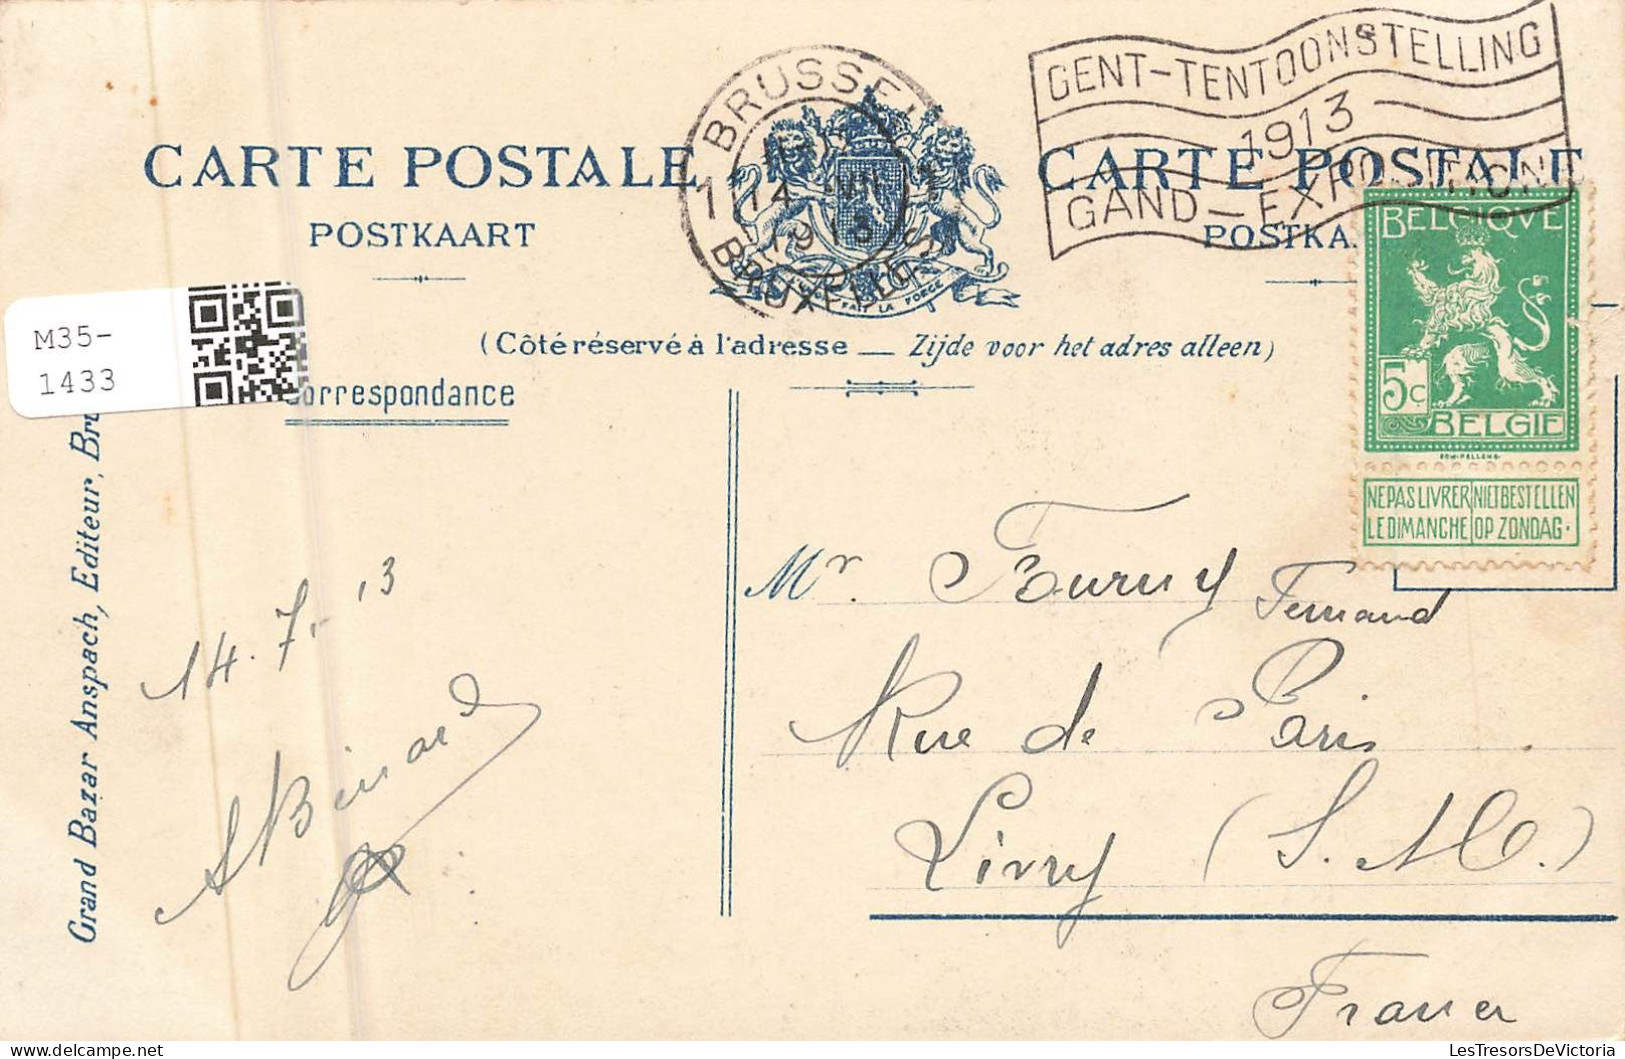 GENT-TENTOONSTELLING
1913
GAND-EXPOSITION
BRUSSEL
1 14 VII 1
1913
BRUXELLES
CARTE POSTALE
POSTKAART
FAIT LA FORCE
CARTE POSTALE
POSTKA
BELGIQVE
5c
BELGIE
NE PAS LIVRER LE DIMANCHE
NIET BESTELLEN OP ZONDAG.
M35-
1433
(Côté réservé à l'adresse — Zijde voor het adres alleen)
Correspondance
Grand Bazar Anspach, Editeur, Bru
14.7.13
Mr Fourny Fernand
Rue de Paris
Livry (S. & O.)
France
LesTresorsDeVictoria.com